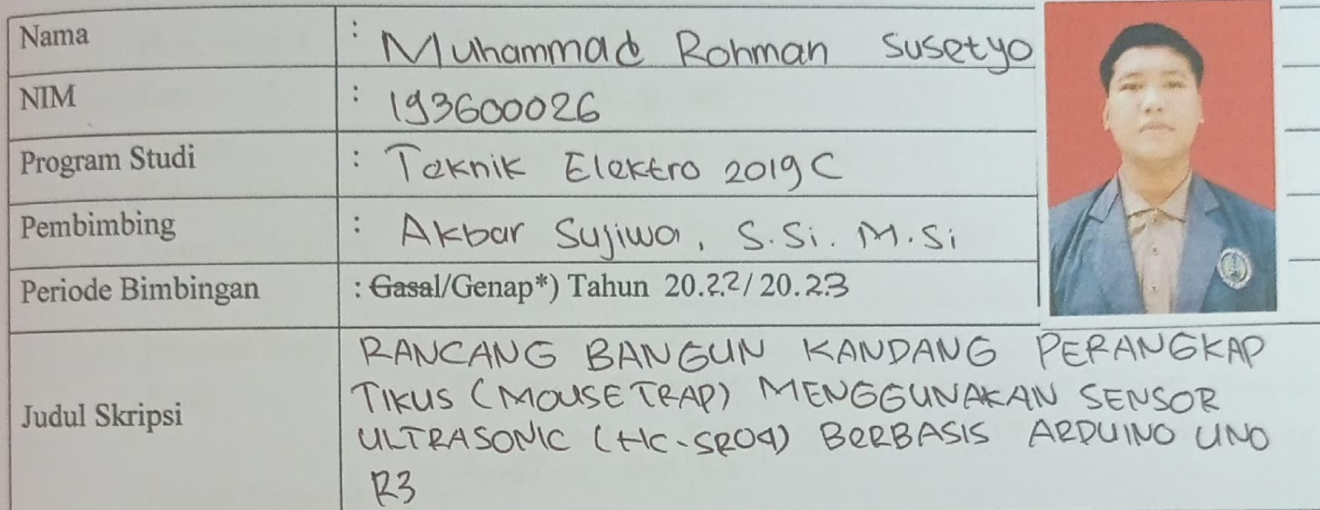 Nama : Muhammad Rohman Susetyo
NIM : 193600026
Program Studi : Teknik Elektro 2019 C
Pembimbing : Akbar Sujiwa, S.Si. M.Si
Periode Bimbingan : Gasal/Genap*) Tahun 20.22/20.23
Judul Skripsi
RANCANG BANGUN KANDANG PERANGKAP
TIKUS (MOUSE TRAP) MENGGUNAKAN SENSOR
ULTRASONIC (HC-SR04) BERBASIS ARDUINO UNO
R3